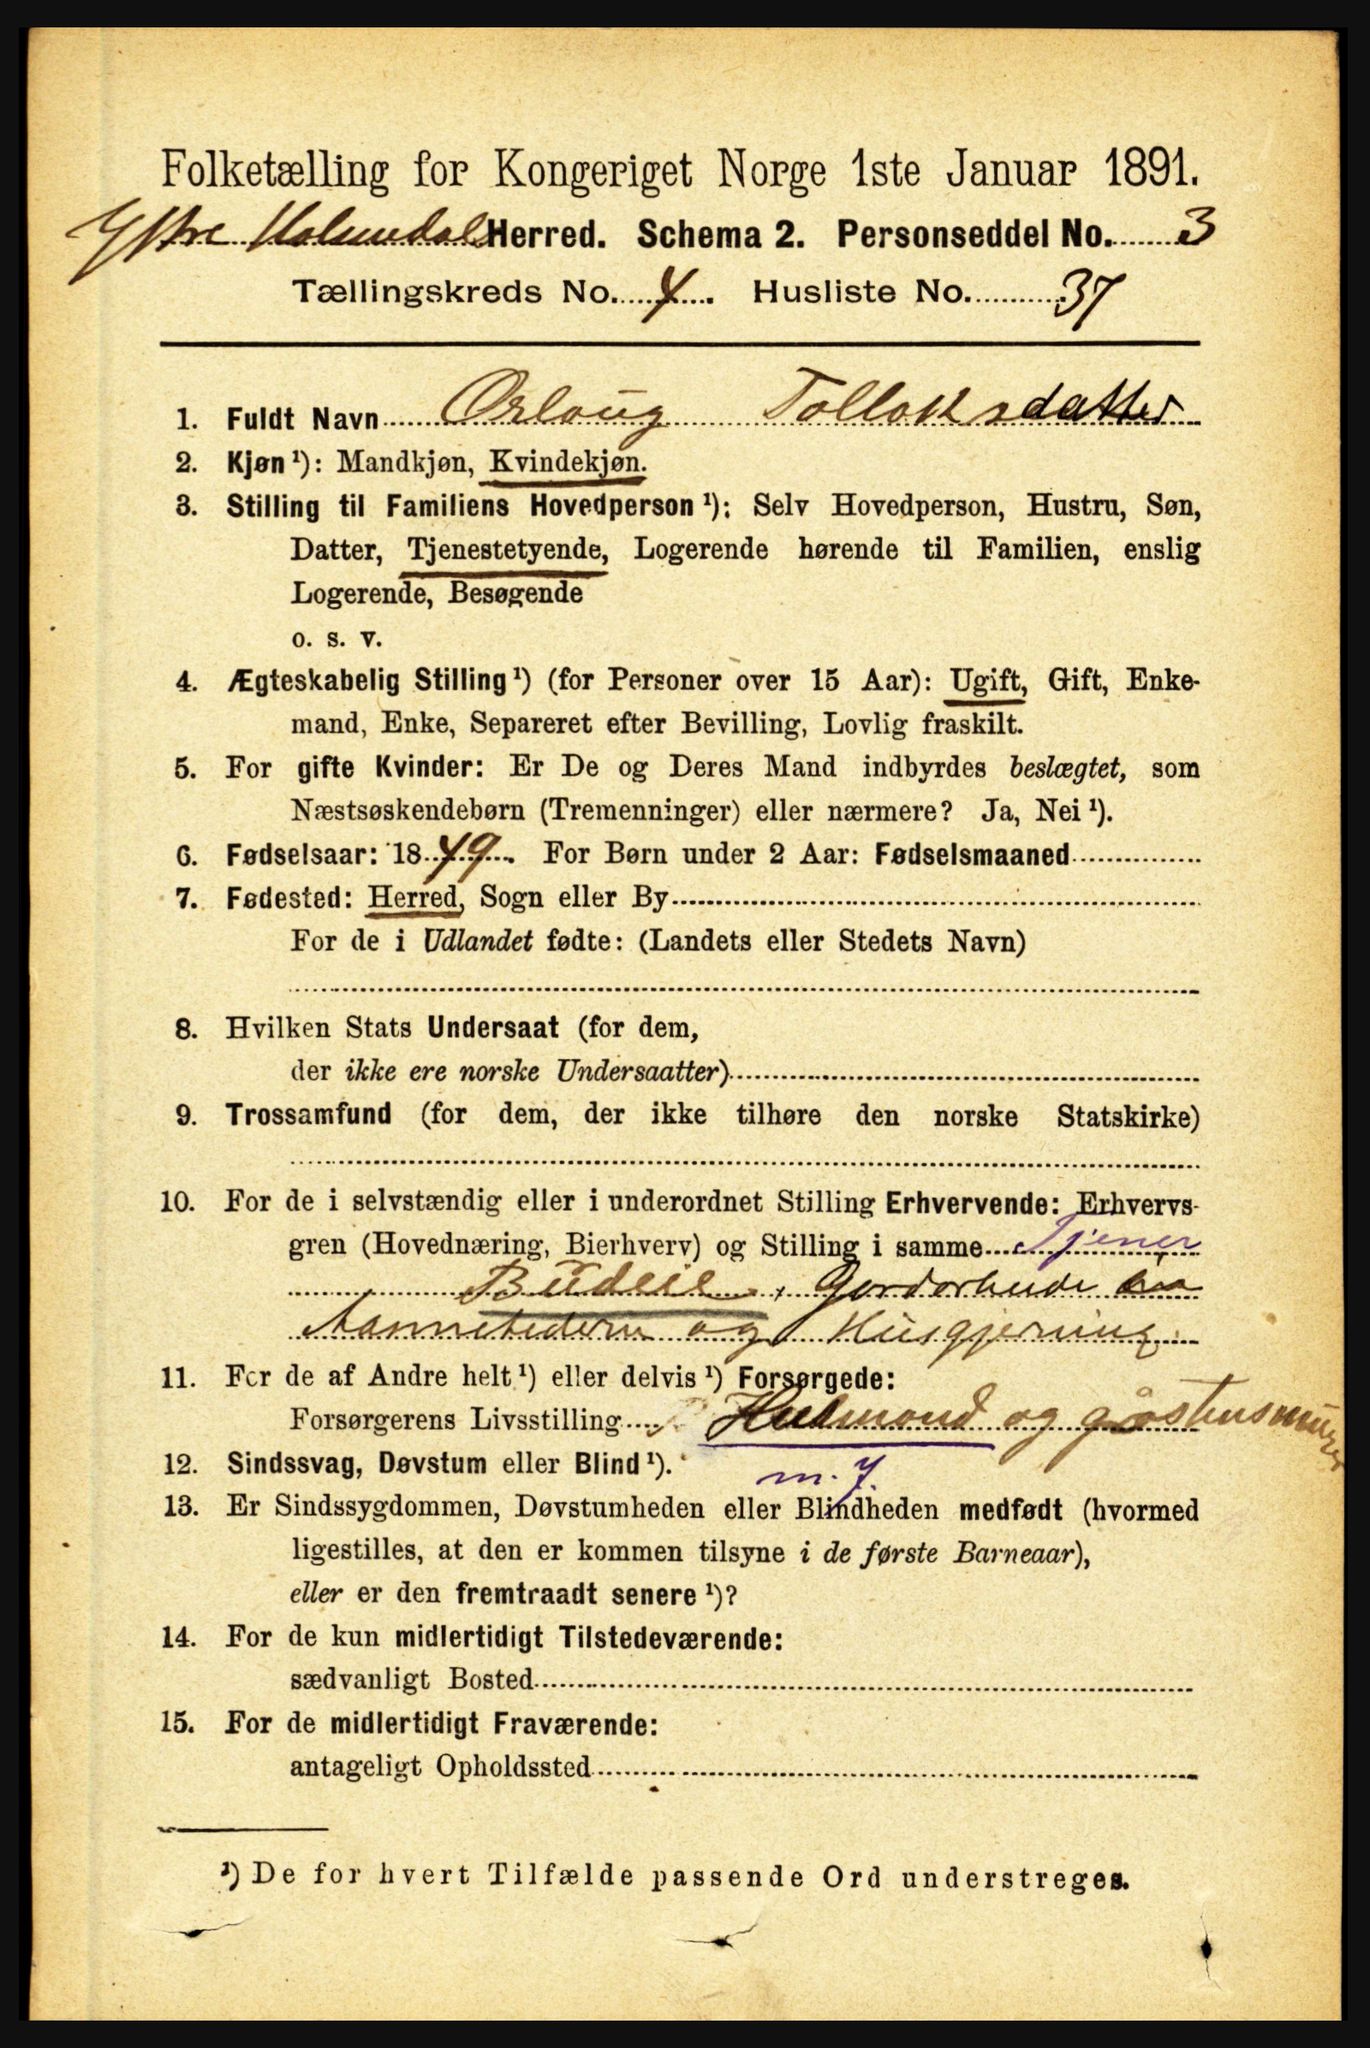 Folketælling for Kongeriget Norge 1ste Januar 1891.
Ytre Holmedals Herred. Schema 2. Personseddel No. 3
Tællingskreds No. 4. Husliste No. 37
1. Fuldt Navn Orloug Tollaksdatter
2. Kjøn ¹): Mandkjøn, Kvindekjøn.
3. Stilling til Familiens Hovedperson ¹): Selv Hovedperson, Hustru, Søn,
Datter, Tjenestetyende, Logerende hørende til Familien, enslig
Logerende, Besøgende
o. s. v.
4. Ægteskabelig Stilling ¹) (for Personer over 15 Aar): Ugift, Gift, Enke-
mand, Enke, Separeret efter Bevilling, Lovlig fraskilt.
5. For gifte Kvinder: Er De og Deres Mand indbyrdes beslægtet, som
Næstsøskendebørn (Tremenninger) eller nærmere? Ja, Nei ¹).
6. Fødselsaar: 1849. For Børn under 2 Aar: Fødselsmaaned
7. Fødested: Herred, Sogn eller By
For de i Udlandet fødte: (Landets eller Stedets Navn)
8. Hvilken Stats Undersaat (for dem,
der ikke ere norske Undersaatter)
9. Trossamfund (for dem, der ikke tilhøre den norske Statskirke)
10. For de i selvstændig eller i underordnet Stilling Erhvervende: Erhvervs-
gren (Hovednæring, Bierhverv) og Stilling i samme Tjener
Budeie,
og Husgjerning.
11. For de af Andre helt ¹) eller delvis ¹) Forsørgede:
Forsørgerens Livsstilling og
12. Sindssvag, Døvstum eller Blind ¹). m. J.
13. Er Sindssygdommen, Døvstumheden eller Blindheden medfødt (hvormed
ligestilles, at den er kommen tilsyne i de første Barneaar),
eller er den fremtraadt senere ¹)?
14. For de kun midlertidigt Tilstedeværende:
sædvanligt Bosted
15. For de midlertidigt Fraværende:
antageligt Opholdssted
¹) De for hvert Tilfælde passende Ord understreges.